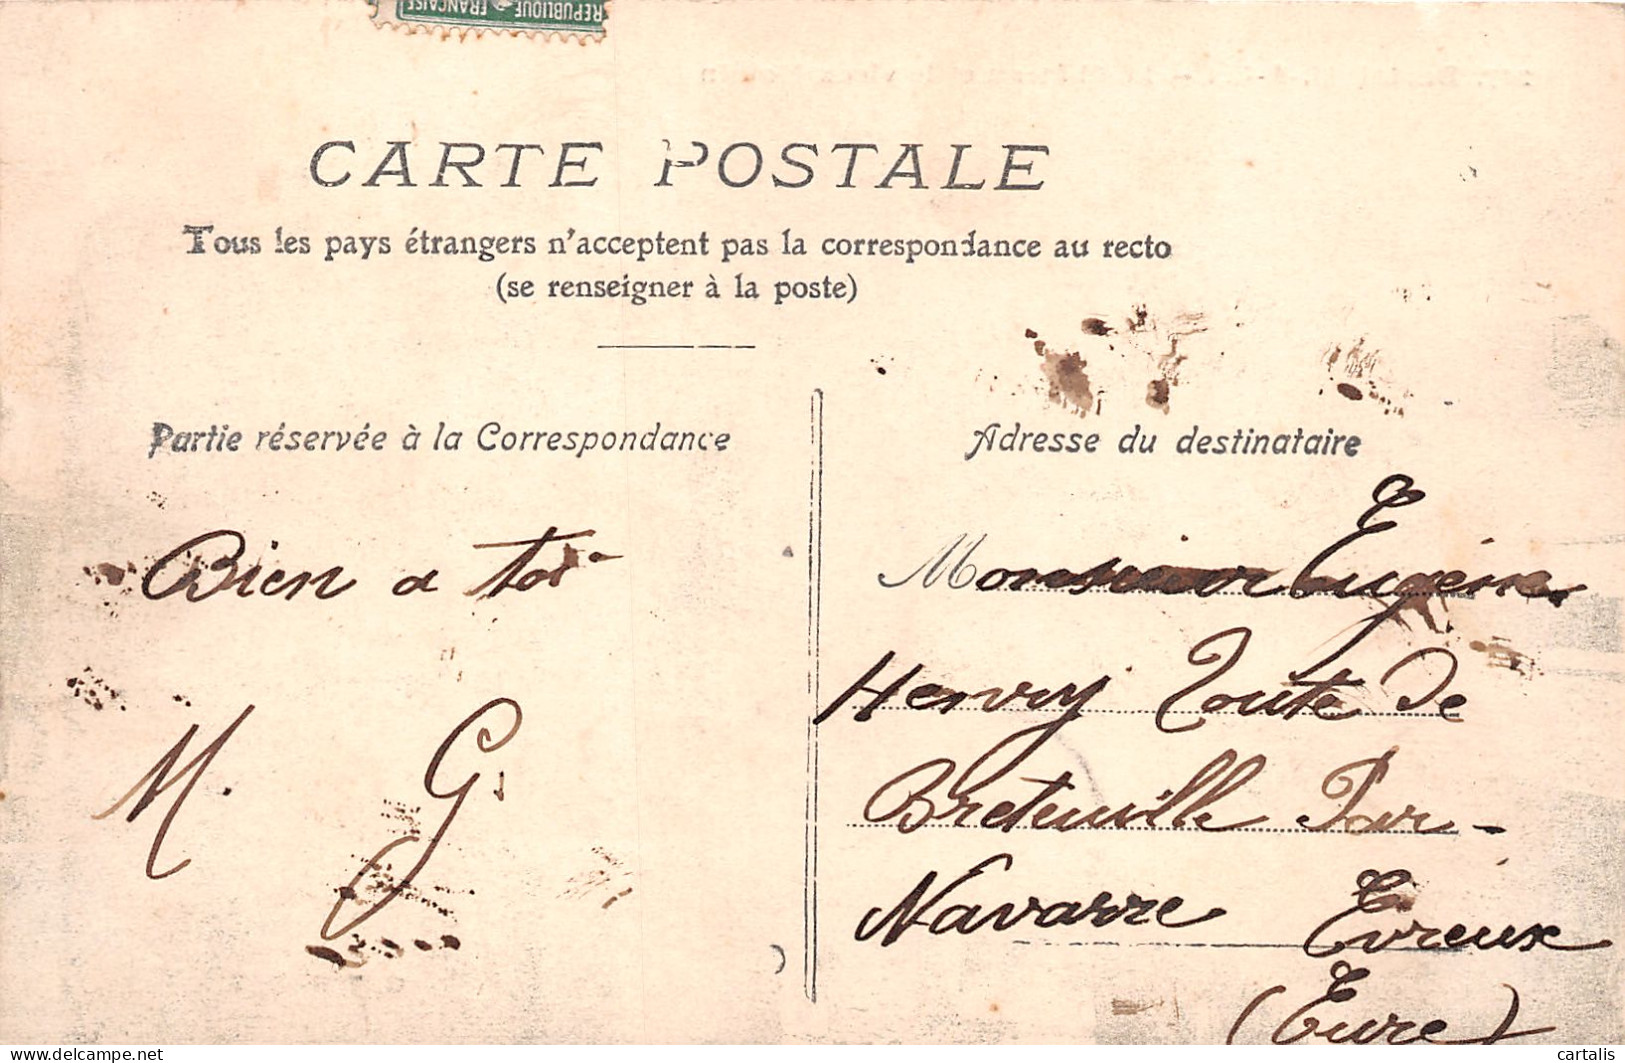 REPUBLIQUE FRANÇAISE
CARTE POSTALE
Tous les pays étrangers n'acceptent pas la correspondance au recto
(se renseigner à la poste)
Partie réservée à la Correspondance
Bien a toi
M. G.
Adresse du destinataire
Monsieur Eugène
Henry Route de
Breteuille Par-
Navarre Evreux
(Eure)
delcampe.net
cartalis